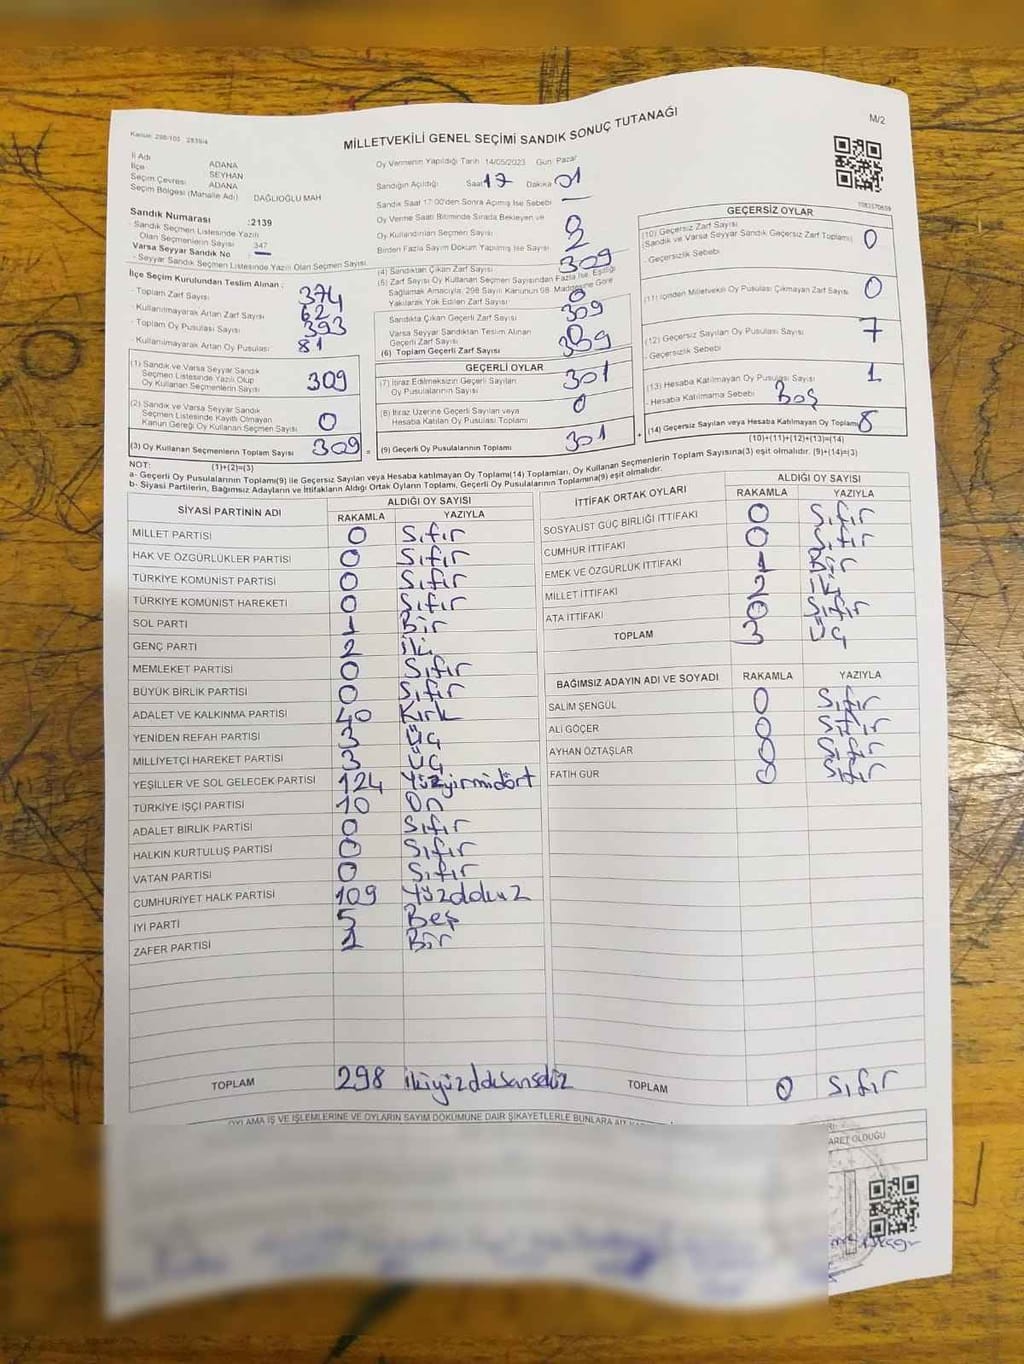 Kanun: 298/105
MİLLETVEKİLİ GENEL SEÇİMİ SANDIK SONUÇ TUTANAĞI
M/2
İl Adı ADANA
İlçe SEYHAN
Seçim Çevresi ADANA
Seçim Bölgesi (Mahalle Adı) DAĞLIOĞLU MAH
Sandık Numarası :2139
- Sandık Seçmen Listesinde Yazılı
Olan Seçmenlerin Sayısı 347
Varsa Seyyar Sandık No
- Seyyar Sandık Seçmen Listesinde Yazılı Olan Seçmen Sayısı
Oy Vermenin Yapıldığı Tarih 14/05/2023 Gün Pazar
Sandığın Açıldığı Saat 17 Dakika 01
Sandık Saat 17:00'den Sonra Açılmış İse Sebebi —
Oy Verme Saati Bitiminde Sırada Bekleyen ve
Oy Kullandırılan Seçmen Sayısı
Birden Fazla Sayım Döküm Yapılmış İse Sayısı
İlçe Seçim Kurulundan Teslim Alınan :
- Toplam Zarf Sayısı 374
- Kullanılmayarak Artan Zarf Sayısı 62
- Toplam Oy Pusulası Sayısı 393
- Kullanılmayarak Artan Oy Pusulası 81
(1) Sandık ve Varsa Seyyar Sandık
Seçmen Listesinde Yazılı Olup
Oy Kullanan Seçmenlerin Sayısı 309
(2) Sandık ve Varsa Seyyar Sandık
Seçmen Listesinde Kayıtlı Olmayan
Kanun Gereği Oy Kullanan Seçmen Sayısı 0
(3) Oy Kullanan Seçmenlerin Toplam Sayısı 309
(1)+(2)=(3)
(4) Sandıktan Çıkan Zarf Sayısı 309
(5) Zarf Sayısı Oy Kullanan Seçmen Sayısından Fazla İse, Eşitliği
Sağlamak Amacıyla, 298 Sayılı Kanunun 98. Maddesine Göre
Yakılarak Yok Edilen Zarf Sayısı 0
Sandıkta Çıkan Geçerli Zarf Sayısı 309
Varsa Seyyar Sandıktan Teslim Alınan
Geçerli Zarf Sayısı
(6) Toplam Geçerli Zarf Sayısı 309
GEÇERLİ OYLAR
(7) İtiraz Edilmeksizin Geçerli Sayılan
Oy Pusulalarının Sayısı 301
(8) İtiraz Üzerine Geçerli Sayılan veya
Hesaba Katılan Oy Pusulası Toplamı 0
(9) Geçerli Oy Pusulalarının Toplamı 301
GEÇERSİZ OYLAR
(10) Geçersiz Zarf Sayısı
(Sandık ve Varsa Seyyar Sandık Geçersiz Zarf Toplamı) 0
- Geçersizlik Sebebi
(11) İçinden Milletvekili Oy Pusulası Çıkmayan Zarf Sayısı 0
(12) Geçersiz Sayılan Oy Pusulası Sayısı 7
- Geçersizlik Sebebi
(13) Hesaba Katılmayan Oy Pusulası Sayısı 1
- Hesaba Katılmama Sebebi Boş
(14) Geçersiz Sayılan veya Hesaba Katılmayan Oy Toplamı 8
(10)+(11)+(12)+(13)=(14)
NOT:
a- Geçerli Oy Pusulalarının Toplamı(9) ile Geçersiz Sayılan veya Hesaba katılmayan Oy Toplamı(14) Toplamları, Oy Kullanan Seçmenlerin Toplam Sayısına(3) eşit olmalıdır. (9)+(14)=(3)
b- Siyasi Partilerin, Bağımsız Adayların ve İttifakların Aldığı Ortak Oyların Toplamı, Geçerli Oy Pusulalarının Toplamına(9) eşit olmalıdır.
SİYASİ PARTİNİN ADI ALDIĞI OY SAYISI
RAKAMLA YAZIYLA
MİLLET PARTİSİ 0 Sıfır
HAK VE ÖZGÜRLÜKLER PARTİSİ 0 Sıfır
TÜRKİYE KOMÜNİST PARTİSİ 0 Sıfır
TÜRKİYE KOMÜNİST HAREKETİ 0 Sıfır
SOL PARTİ 1 Bir
GENÇ PARTİ 2 İki
MEMLEKET PARTİSİ 0 Sıfır
BÜYÜK BİRLİK PARTİSİ 0 Sıfır
ADALET VE KALKINMA PARTİSİ 40 Kırk
YENİDEN REFAH PARTİSİ 3 Üç
MİLLİYETÇİ HAREKET PARTİSİ 3 Üç
YEŞİLLER VE SOL GELECEK PARTİSİ 124 Yüzyirmidört
TÜRKİYE İŞÇİ PARTİSİ 10 On
ADALET BİRLİK PARTİSİ 0 Sıfır
HALKIN KURTULUŞ PARTİSİ 0 Sıfır
VATAN PARTİSİ 0 Sıfır
CUMHURİYET HALK PARTİSİ 109 Yüzdokuz
İYİ PARTİ 5 Beş
ZAFER PARTİSİ 1 Bir
TOPLAM 298 ikiyüzdoksansekiz
İTTİFAK ORTAK OYLARI ALDIĞI OY SAYISI
RAKAMLA YAZIYLA
SOSYALİST GÜÇ BİRLİĞİ İTTİFAKI 0 Sıfır
CUMHUR İTTİFAKI 0 Sıfır
EMEK VE ÖZGÜRLÜK İTTİFAKI 1 Bir
MİLLET İTTİFAKI 2 İki
ATA İTTİFAKI 0 Sıfır
TOPLAM 3 Üç
BAĞIMSIZ ADAYIN ADI VE SOYADI RAKAMLA YAZIYLA
SALİM ŞENGÜL 0 Sıfır
ALİ GÖÇER 0 Sıfır
AYHAN ÖZTAŞLAR 0 Sıfır
FATİH GÜR 0 Sıfır
TOPLAM 0 Sıfır
OYLAMA İŞ VE İŞLEMLERİNE VE OYLARIN SAYIM DÖKÜMÜNE DAİR ŞİKAYETLERLE BUNLARA AİT
ARET OLDUĞU